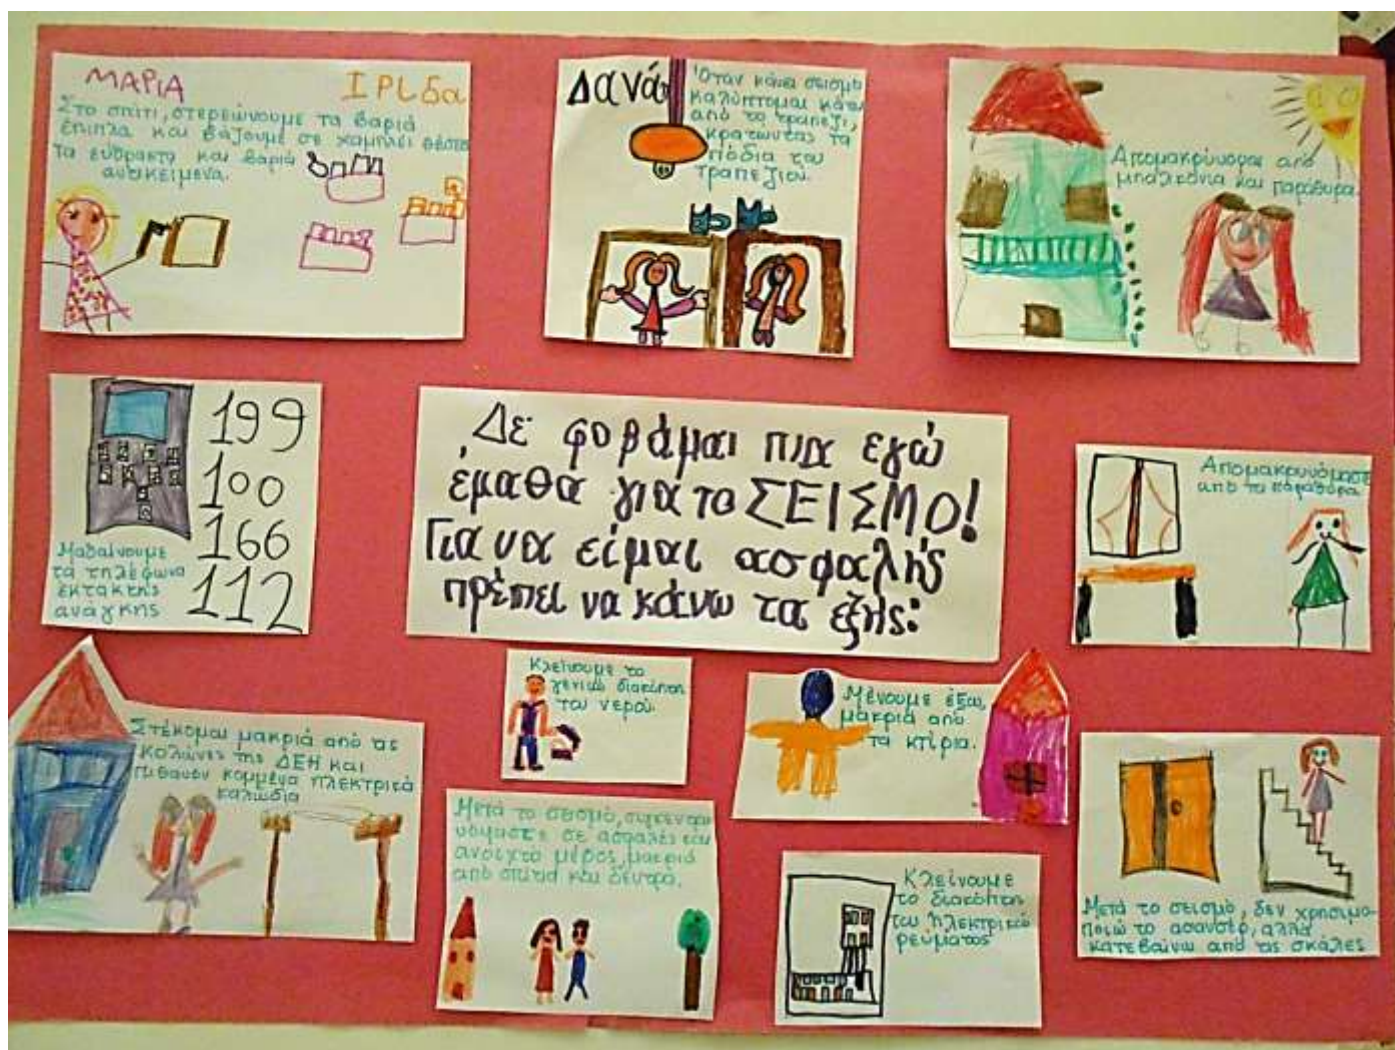 ΜΑΡΙΑ
ΙΡΙδα
Στο σπίτι, στερεώνουμε τα βαριά
έπιπλα και βάζουμε σε χαμηλές θέσεις
τα εύθραστα και βαριά
αντικείμενα.
Δανάη
Όταν κάνει σεισμό
καλύπτομαι κάτω
από το τραπέζι,
κρατώντας τα
πόδια του
τραπεζιού.
Απομακρύνομαι από
μπαλκόνια και παράθυρα.
199
100
166
112
Μαθαίνουμε
τα τηλέφωνα
έκτακτης
ανάγκης
Δε φοβάμαι πια εγώ
έμαθα για το ΣΕΙΣΜΟ!
Για να είμαι ασφαλής
πρέπει να κάνω τα εξής:
Απομακρυνόμαστε
από τα παράθυρα
Στέκομαι μακριά από τις
κολώνες της ΔΕΗ και
πιθανόν κομμένα ηλεκτρικά
καλώδια
Κλείνουμε το
γενικό διακόπτη
του νερού.
Μένουμε έξω,
μακριά από
τα κτίρια.
Μετά το σεισμό, συγκεντρω
νόμαστε σε ασφαλές και
ανοιχτό μέρος, μακριά
από σπίτια και δέντρα.
Κλείνουμε
το διακόπτη
του ηλεκτρικού
ρεύματος
Μετά το σεισμό, δεν χρησιμο-
ποιώ το ασανσέρ, αλλά
κατεβαίνω από τις σκάλες